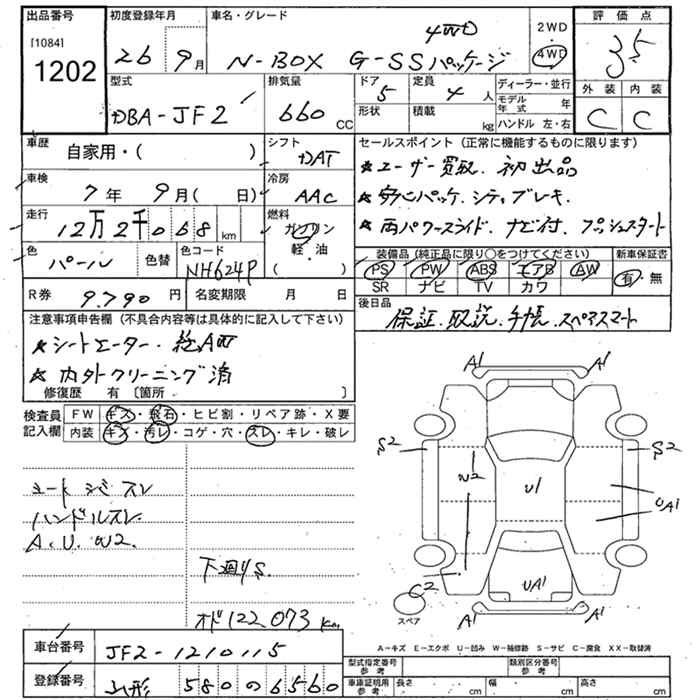 出品番号 初度登録年月 車名・グレード 2WD 4WD 評価点
[1084] 1202 26 9月 N-BOX G-SSパッケージ 4WD 3.5
外装 内装
C C
型式 排気量 ドア 定員 ディーラー・並行
DBA-JF2 660 CC 5 4 人 モデル年式 年
形状 積載 kg ハンドル 左・右
車歴 自家用・( ) シフト DAT
セールスポイント (正常に機能するものに限ります)
★ユーザー買取. 初出品
車検 7年 9月( 日) 冷房 AAC
★安心パッケ. シティブレーキ.
走行 12万2千068 km 燃料 ガソリン 軽・油 ( )
★両パワースライド. ナビ付. プッシュスタート
色 パール 色替 色コード NH624P
装備品 (純正品に限り○をつけてください) 新車保証書
PS PW ABS エアB AW 有・無
SR ナビ TV カワ
R券 9.790 円 名変期限 月 日
後日品
保証. 取説. 手帳. スペアスマート
注意事項申告欄 (不具合内容等は具体的に記入して下さい)
★シートヒーター.
★内外クリーニング済
修復歴 有 〔箇所 〕
検査員記入欄 FW キズ・飛石・ヒビ割・リペア跡・X要
内装 キズ・汚レ・コゲ・穴・スレ・キレ・破レ
A1 A1
S2 S2
W2 U1 UA1
シートシミ スレ
ハンドルスレ.
A.U.W2.
下廻りS.
C2 UA1
スペア
A1 A1
オド122,073 Km
A-キズ E-エクボ U-凹み W-補修跡 S-サビ C-腐食 XX-取替済
車台番号 JF2-1210115
登録番号 山形 580の6560
型式指定番号 参考 類別区分番号 参考
車庫証明用 参考 長さ cm 幅 cm 高さ cm